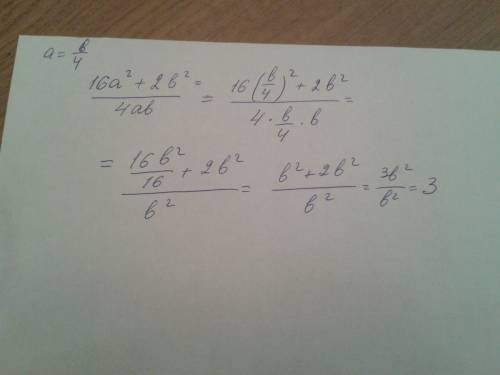 a = b/4
(16a² + 2b²)/(4ab) = = (16(b/4)² + 2b²)/(4 · b/4 · b) =
= (16b²/16 + 2b²)/b² = (b² + 2b²)/b² = 3b²/b² = 3